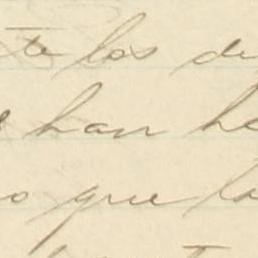 te los de
han he
o que lo